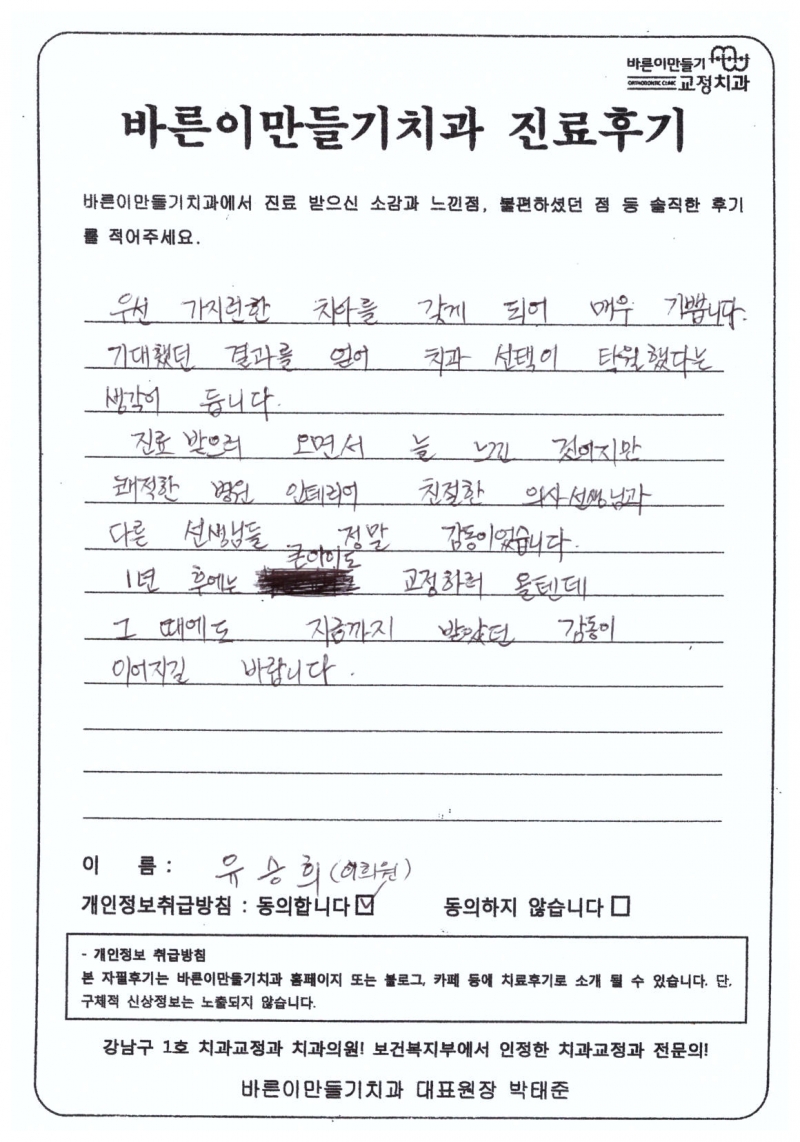 바른이만들기
ORTHODONTIC CLINIC 교정치과
바른이만들기치과 진료후기
바른이만들기치과에서 진료 받으신 소감과 느낀점, 불편하셨던 점 등 솔직한 후기
를 적어주세요.
우선 가지런한 치아를 갖게 되어 매우 기쁩니다.
기대했던 결과를 얻어 치과 선택이 탁월했다는
생각이 듭니다.
진료 받으러 오면서 늘 느낀 것이지만
쾌적한 병원 인테리어 친절한 의사선생님과
다른 선생님들 정말 감동이었습니다.
1년 후에는 큰아이도 교정하러 올텐데
그 때에도 지금까지 받았던 감동이
이어지길 바랍니다.
이 름 : 유승희 (이희원)
개인정보취급방침 : 동의합니다 ☑ 동의하지 않습니다 □
- 개인정보 취급방침
본 자필후기는 바른이만들기치과 홈페이지 또는 블로그, 카페 등에 치료후기로 소개 될 수 있습니다. 단,
구체적 신상정보는 노출되지 않습니다.
강남구 1호 치과교정과 치과의원! 보건복지부에서 인정한 치과교정과 전문의!
바른이만들기치과 대표원장 박태준